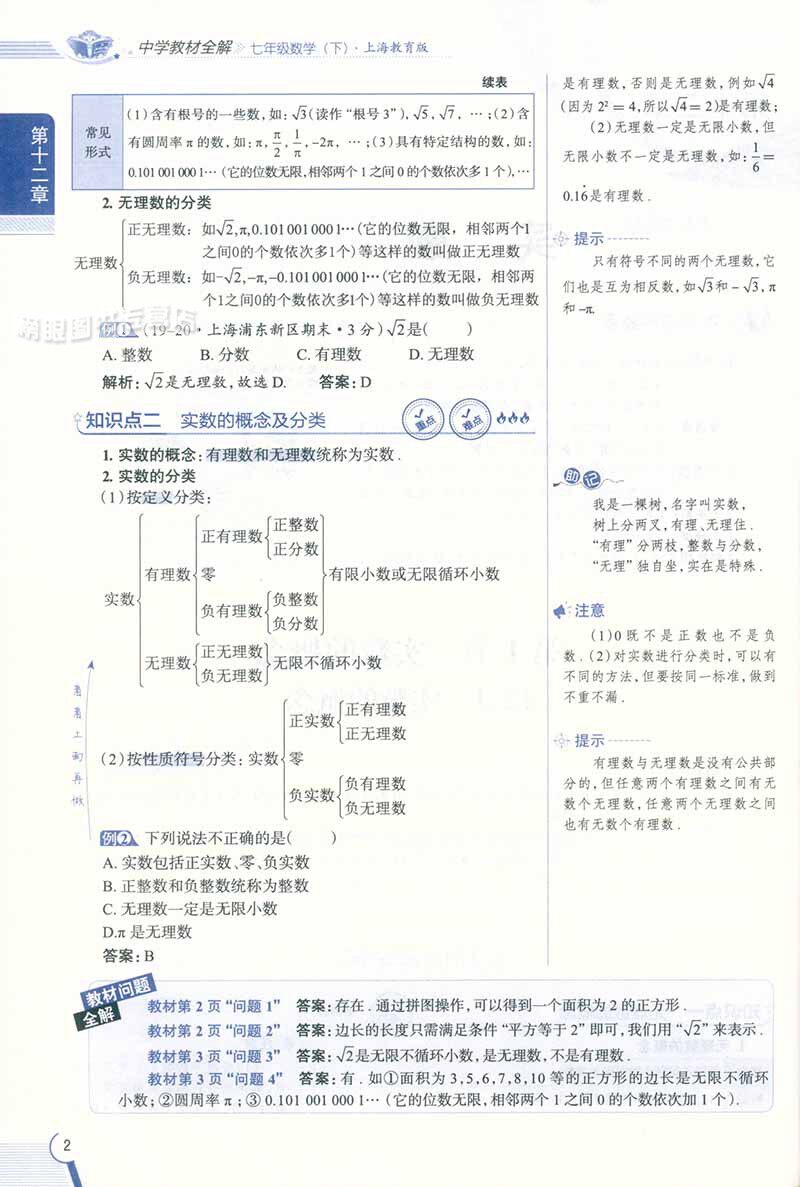 中学教材全解 七年级数学（下）·上海教育版
续表
第十二章
常见形式
(1)含有根号的一些数,如:√3(读作“根号3”),√5,√7,…;(2)含
有圆周率π的数,如:π,π/2,1/π,-2π,…;(3)具有特定结构的数,如:
0.101 001 000 1…(它的位数无限,相邻两个1之间0的个数依次多1个),…
2. 无理数的分类
无理数
正无理数：如√2,π,0.101 001 000 1…(它的位数无限，相邻两个1
之间0的个数依次多1个)等这样的数叫做正无理数
负无理数：如-√2,-π,-0.101 001 000 1…(它的位数无限，相邻两
个1之间0的个数依次多1个)等这样的数叫做负无理数
例1 (19-20·上海浦东新区期末·3分)√2是(　　)
A. 整数　B. 分数　C. 有理数　D. 无理数
解析:√2是无理数,故选D.　答案:D
知识点二　实数的概念及分类
重点 难点
1. 实数的概念:有理数和无理数统称为实数.
2. 实数的分类
(1)按定义分类:
实数
有理数
正有理数
正整数
正分数
零
负有理数
负整数
负分数
有限小数或无限循环小数
无理数
正无理数
负无理数
无限不循环小数
看看上面再做
(2)按性质符号分类:实数
正实数
正有理数
正无理数
零
负实数
负有理数
负无理数
例2 下列说法不正确的是(　　)
A. 实数包括正实数、零、负实数
B. 正整数和负整数统称为整数
C. 无理数一定是无限小数
D.π是无理数
答案:B
是有理数,否则是无理数,例如√4
(因为2²=4,所以√4=2)是有理数;
(2)无理数一定是无限小数,但
无限小数不一定是无理数,如:1/6=
0.16̇是有理数.
提示
只有符号不同的两个无理数,它
们也是互为相反数,如√3和-√3,π
和-π.
助记
我是一棵树,名字叫实数,
树上分两叉,有理、无理住.
“有理”分两枝,整数与分数,
“无理”独自坐,实在是特殊.
注意
(1)0既不是正数也不是负
数.(2)对实数进行分类时,可以有
不同的方法,但要按同一标准,做到
不重不漏.
提示
有理数与无理数是没有公共部
分的,但任意两个有理数之间有无
数个无理数,任意两个无理数之间
也有无数个有理数.
教材问题
全解
教材第2页“问题1”　答案:存在.通过拼图操作,可以得到一个面积为2的正方形.
教材第2页“问题2”　答案:边长的长度只需满足条件“平方等于2”即可,我们用“√2”来表示.
教材第3页“问题3”　答案:√2是无限不循环小数,是无理数,不是有理数.
教材第3页“问题4”　答案:有.如①面积为3,5,6,7,8,10等的正方形的边长是无限不循环
小数;②圆周率π;③0.101 001 000 1…(它的位数无限,相邻两个1之间0的个数依次加1个).
2